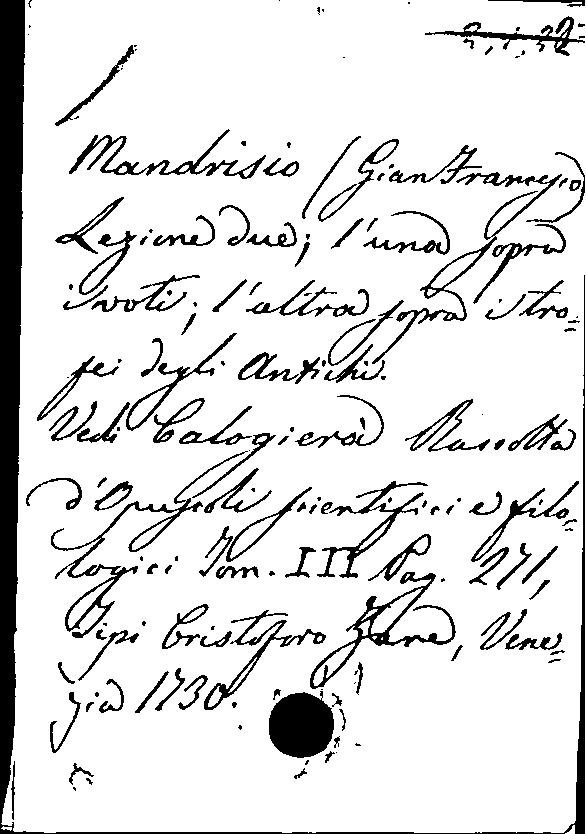 3,1,32
Mandrisio (Gian Francesco)
Lezione due; l'una sopra
i voti; l'altra sopra i tro=
fei degli Antichi.
Vedi Calogierà Raccolta
d'Opuscoli scientifici e filo=
logici Tom. III Pag. 271,
Tipi Cristoforo Zane, Vene=
zia 1730.